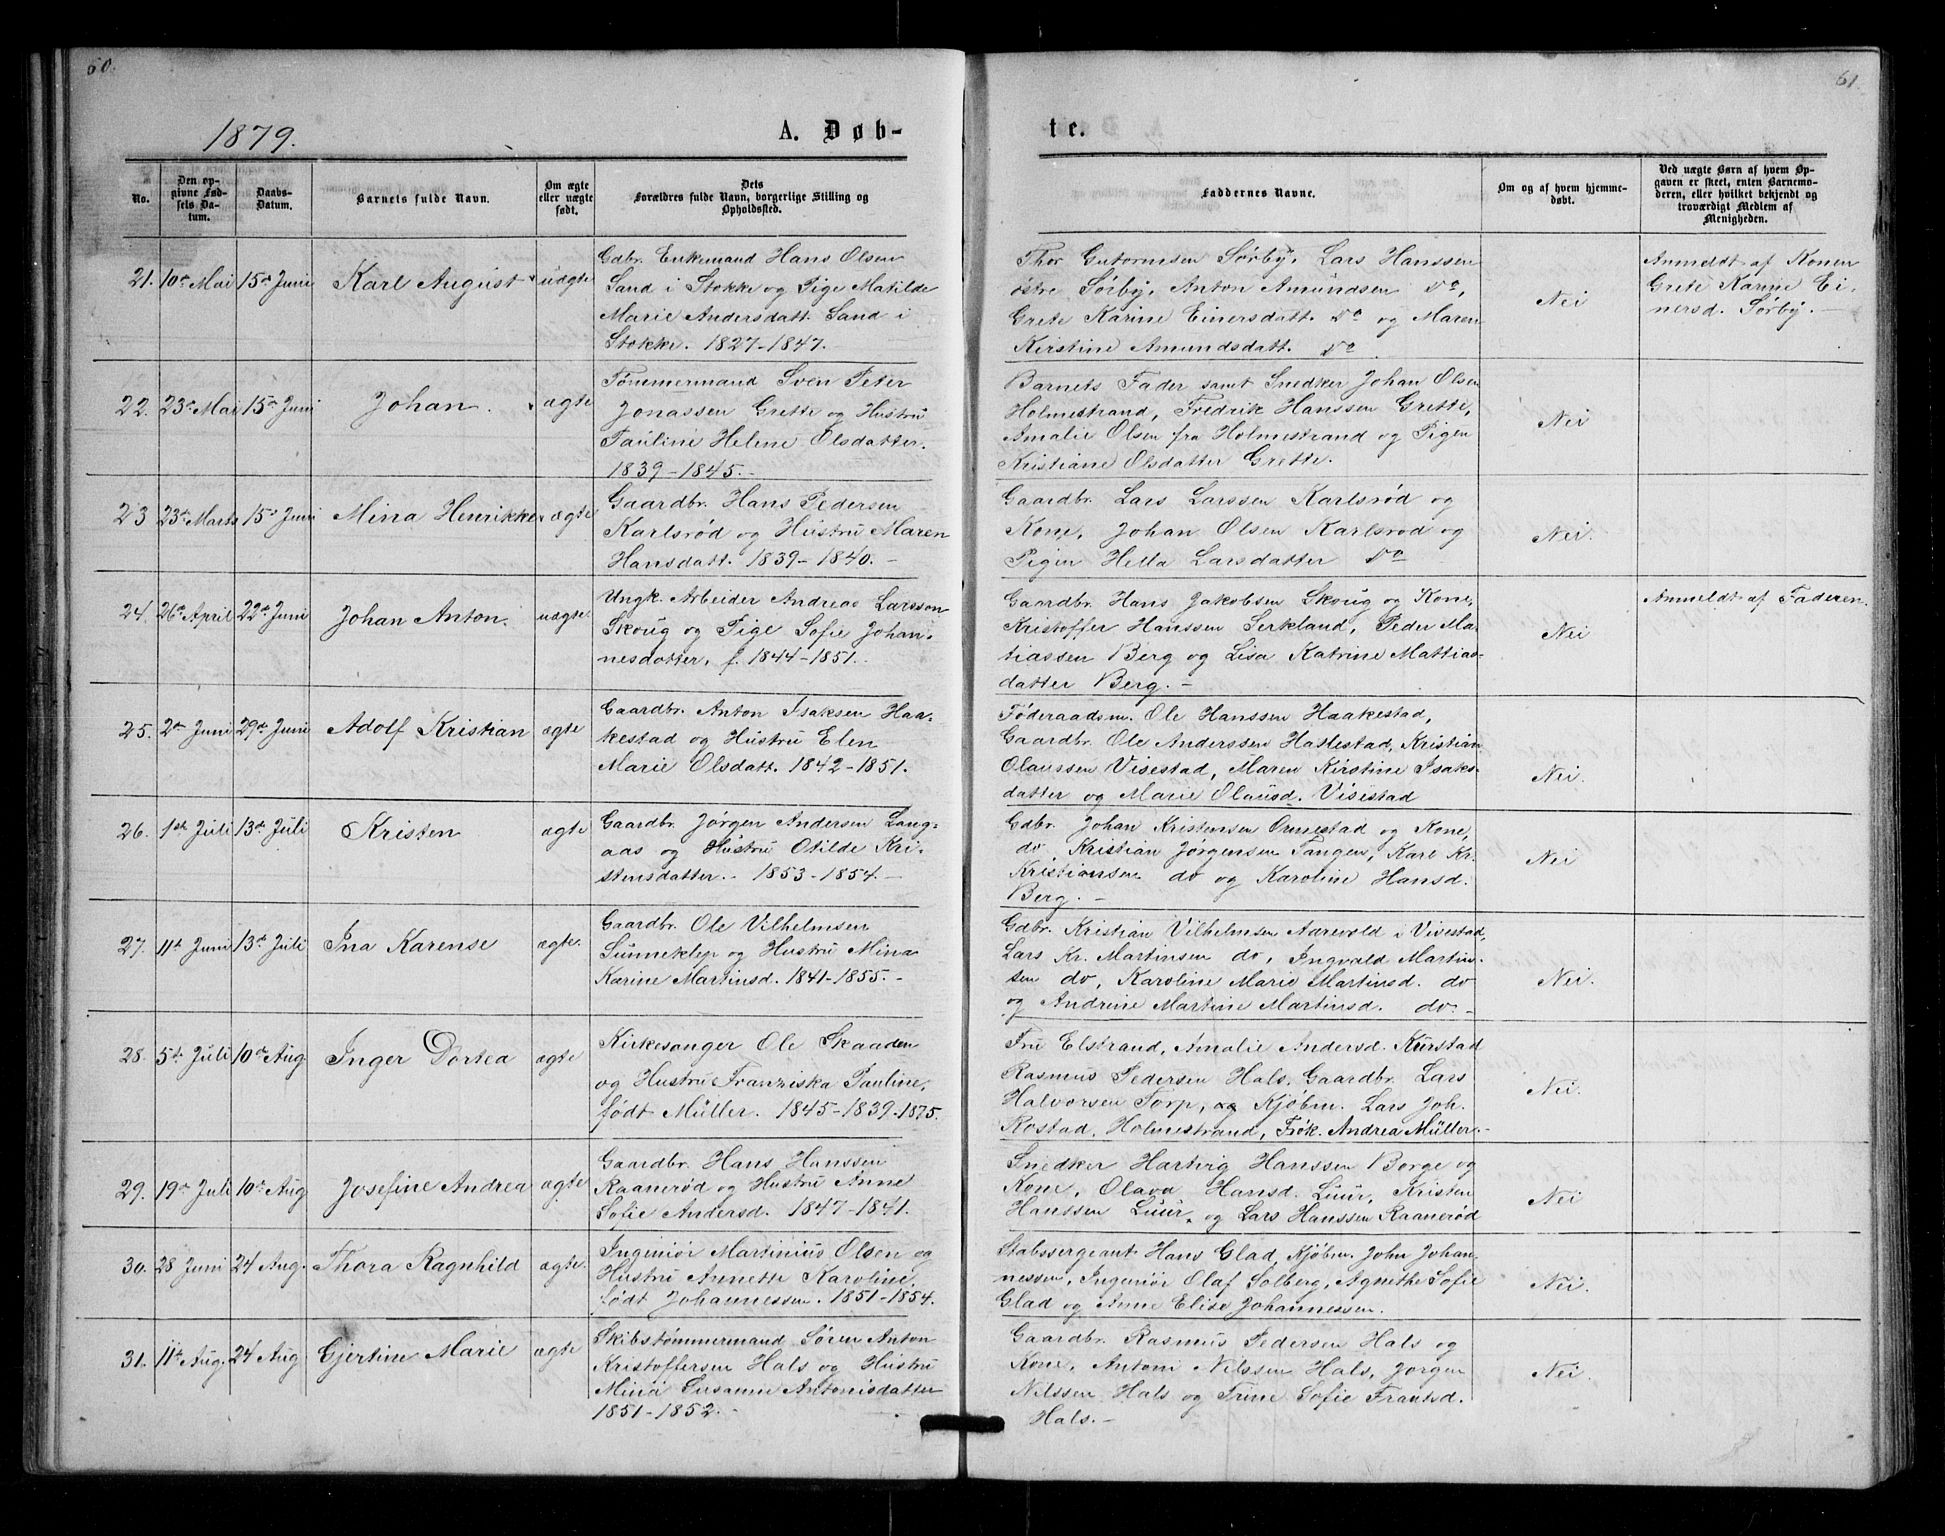 60.
61
1879.
A. Døb-
te.
No.
Den op-
givne Fød-
sels Da-
tum.
Daabs-
Datum.
Barnets fulde Navn.
Om ægte
eller uægte
født.
Dets
Forældres fulde Navn, borgerlige Stilling og
Opholdssted.
Faddernes Navne.
Om og af hvem hjemme-
døbt.
Ved uægte Børn af hvem Op-
gaven er skeet, enten Barnemo-
deren, eller hvilket bekjendt og
troværdigt Medlem af
Menigheden.
21. 10de Mai 15de Juni Karl August uægte
Gdbr. Enkemand Hans Olsen
Sand i Stokke og Pige Matilde
Marie Andersdatt. Sand i
Stokke. 1827-1847.
Thor Gutormsen Sørby, Lars Hanssen
østre Sørby, Anton Amundsen Do,
Grete Karine Einersdatt. Do og Maren
Kirstine Amundsdatt. Do
Nei
Anmeldt af Konen
Grete Karine Ei-
nersd. Sørby.-
22. 23de Mai 15de Juni Johan. ægte
Tømmermand Sven Peter
Jonassen Grette og Hustru
Pauline Helene Olsdatter.
1839-1845.-
Barnets Fader samt Snedker Johan Olsen
Holmestrand, Fredrik Hanssen Grette,
Amalie Olsen fra Holmestrand og Pigen
Kristiane Olsdatter Grette.
Nei
23 23de Marts 15de Juni Mina Henrikke ægte
Gaardbr. Hans Pedersen
Karlsrød og Hustru Maren
Hansdatt. 1839-1840.-
Gaardbr. Lars Larssen Karlsrød og
Kone, Johan Olsen Karlsrød og
Pigen Hella Larsdatter Do
Nei.
24. 26de April 22de Juni Johan Anton. uægte
Ungk. Arbeider Andreas Larsson
Skoug og Pige Sofie Johan-
nesdatter, f. 1844-1851.
Gaardbr. Hans Jakobsen Skoug og Kone,
Kristoffer Hanssen Serkland, Peder Ma-
tiassen Berg og Lisa Katrine Mattias-
datter Berg.-
Nei
Anmeldt af Faderen.
25. 2de Juni 29de Juni Adolf Kristian ægte
Gaardbr. Anton Isaksen Haa-
kestad og Hustru Elen
Marie Olsdatt. 1842-1851.
Føderaadsm. Ole Hanssen Haakestad,
Gaardbr. Ole Anderssen Hallestad, Kristian
Olaussen Visestad, Maren Kirstine Isaks-
datter og Marie Olausd. Visestad
Nei.
26. 1ste Juli 13de Juli Kristen ægte
Gaardbr. Jørgen Andersen Lang-
aas og Hustru Otilde Kri-
stensdatter.- 1853-1854.-
Gdbr. Johan Kristensen Ormestad og Kone,
do, Kristian Jørgensen Tangen, Karl Kr.
Kristiansen do og Karoline Hansd.
Berg.-
Nei
27. 11te Juni 13de Juli Ina Karense ægte.
Gaardbr. Ole Vilhelmsen
Sunneklep og Hustru Mina
Karine Martinsd. 1841-1855.-
Gdbr. Kristian Vilhelmsen Aarevold i Vivestad,
Lars Kr. Martinsen do, Ingvald Martin-
sen do, Karoline Marie Martinsd. do
og Andrine Martine Martinsd. do.-
Nei.
28. 5te Juli 10de Aug Inger Dortea ægte
Kirkesanger Ole Skaaden
og Hustru Franziska Pauline,
født Müller. 1845-1839-1875.
Fru Elstrand, Amalie Andersd. Kirstad
Rasmus Pedersen Hals, Gaardbr. Lars
Halvorsen Torp, og Kjøbm. Lars Joh.
Rostad, Holmestrand, Frøk. Andrea Müller.-
Nei.
29. 19de Juli 10de Aug Josefine Andrea ægte
Gaardbr. Hans Hanssen
Raanerød og Hustru Anne
Sofie Andersd. 1847-1841.
Snedker Hartvig Hanssen Borge og
Kone, Olava Hansd. Luur, Kristen
Hanssen Luur, og Lars Hanssen Raanerød
Nei
30. 28 Juni 24 Aug. Thora Ragnhild ægte.
Ingeniør Martinius Olsen og
Hustru Annette Karoline,
født Johannessen. 1851-1854.
Stabssergeant Hans Glad, Kjøbm. John Johan-
nessen, Ingeniør Olaf Solberg, Agnethe Sofie
Glad og Anne Elise Johannessen.
Nei.
31. 11te Aug. 24 Aug Gjertine Marie ægte
Skibstømmermand Søren Anton
Kristoffersen Hals og Hustru
Mina Susanne Antonisdatter
1851-1852.-
Gaardbr. Rasmus Pedersen Hals og
Kone, Antoni Nilssen Hals, Jørgen
Nilssen Hals og Trine Sofie Frantsd.
Hals.-
Nei.